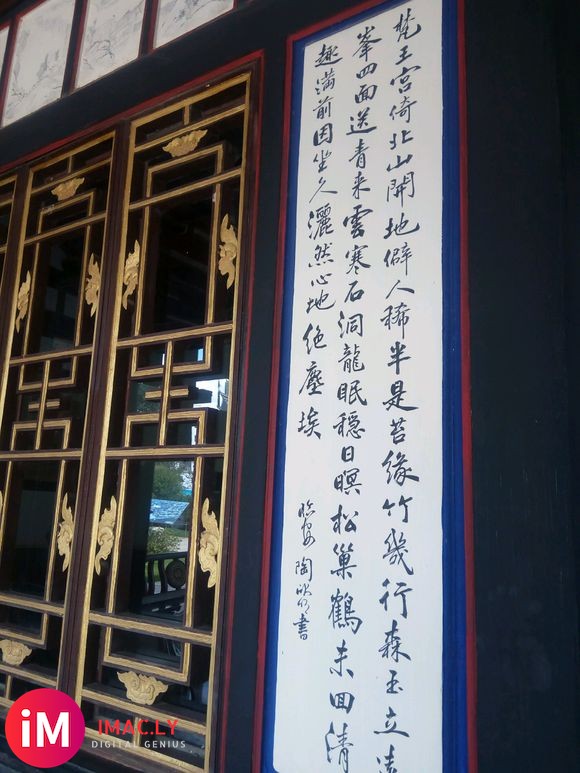 梵王宫倚北山開地僻人稀半是苔緑竹幾行森玉立
峯四面送青来雲寒石洞龍眠穩日暝松巢鶴未回清
趣满前因坐久灑然心地绝塵埃
臨安 陶 書
iM IMAC.LY
DIGITAL GENIUS